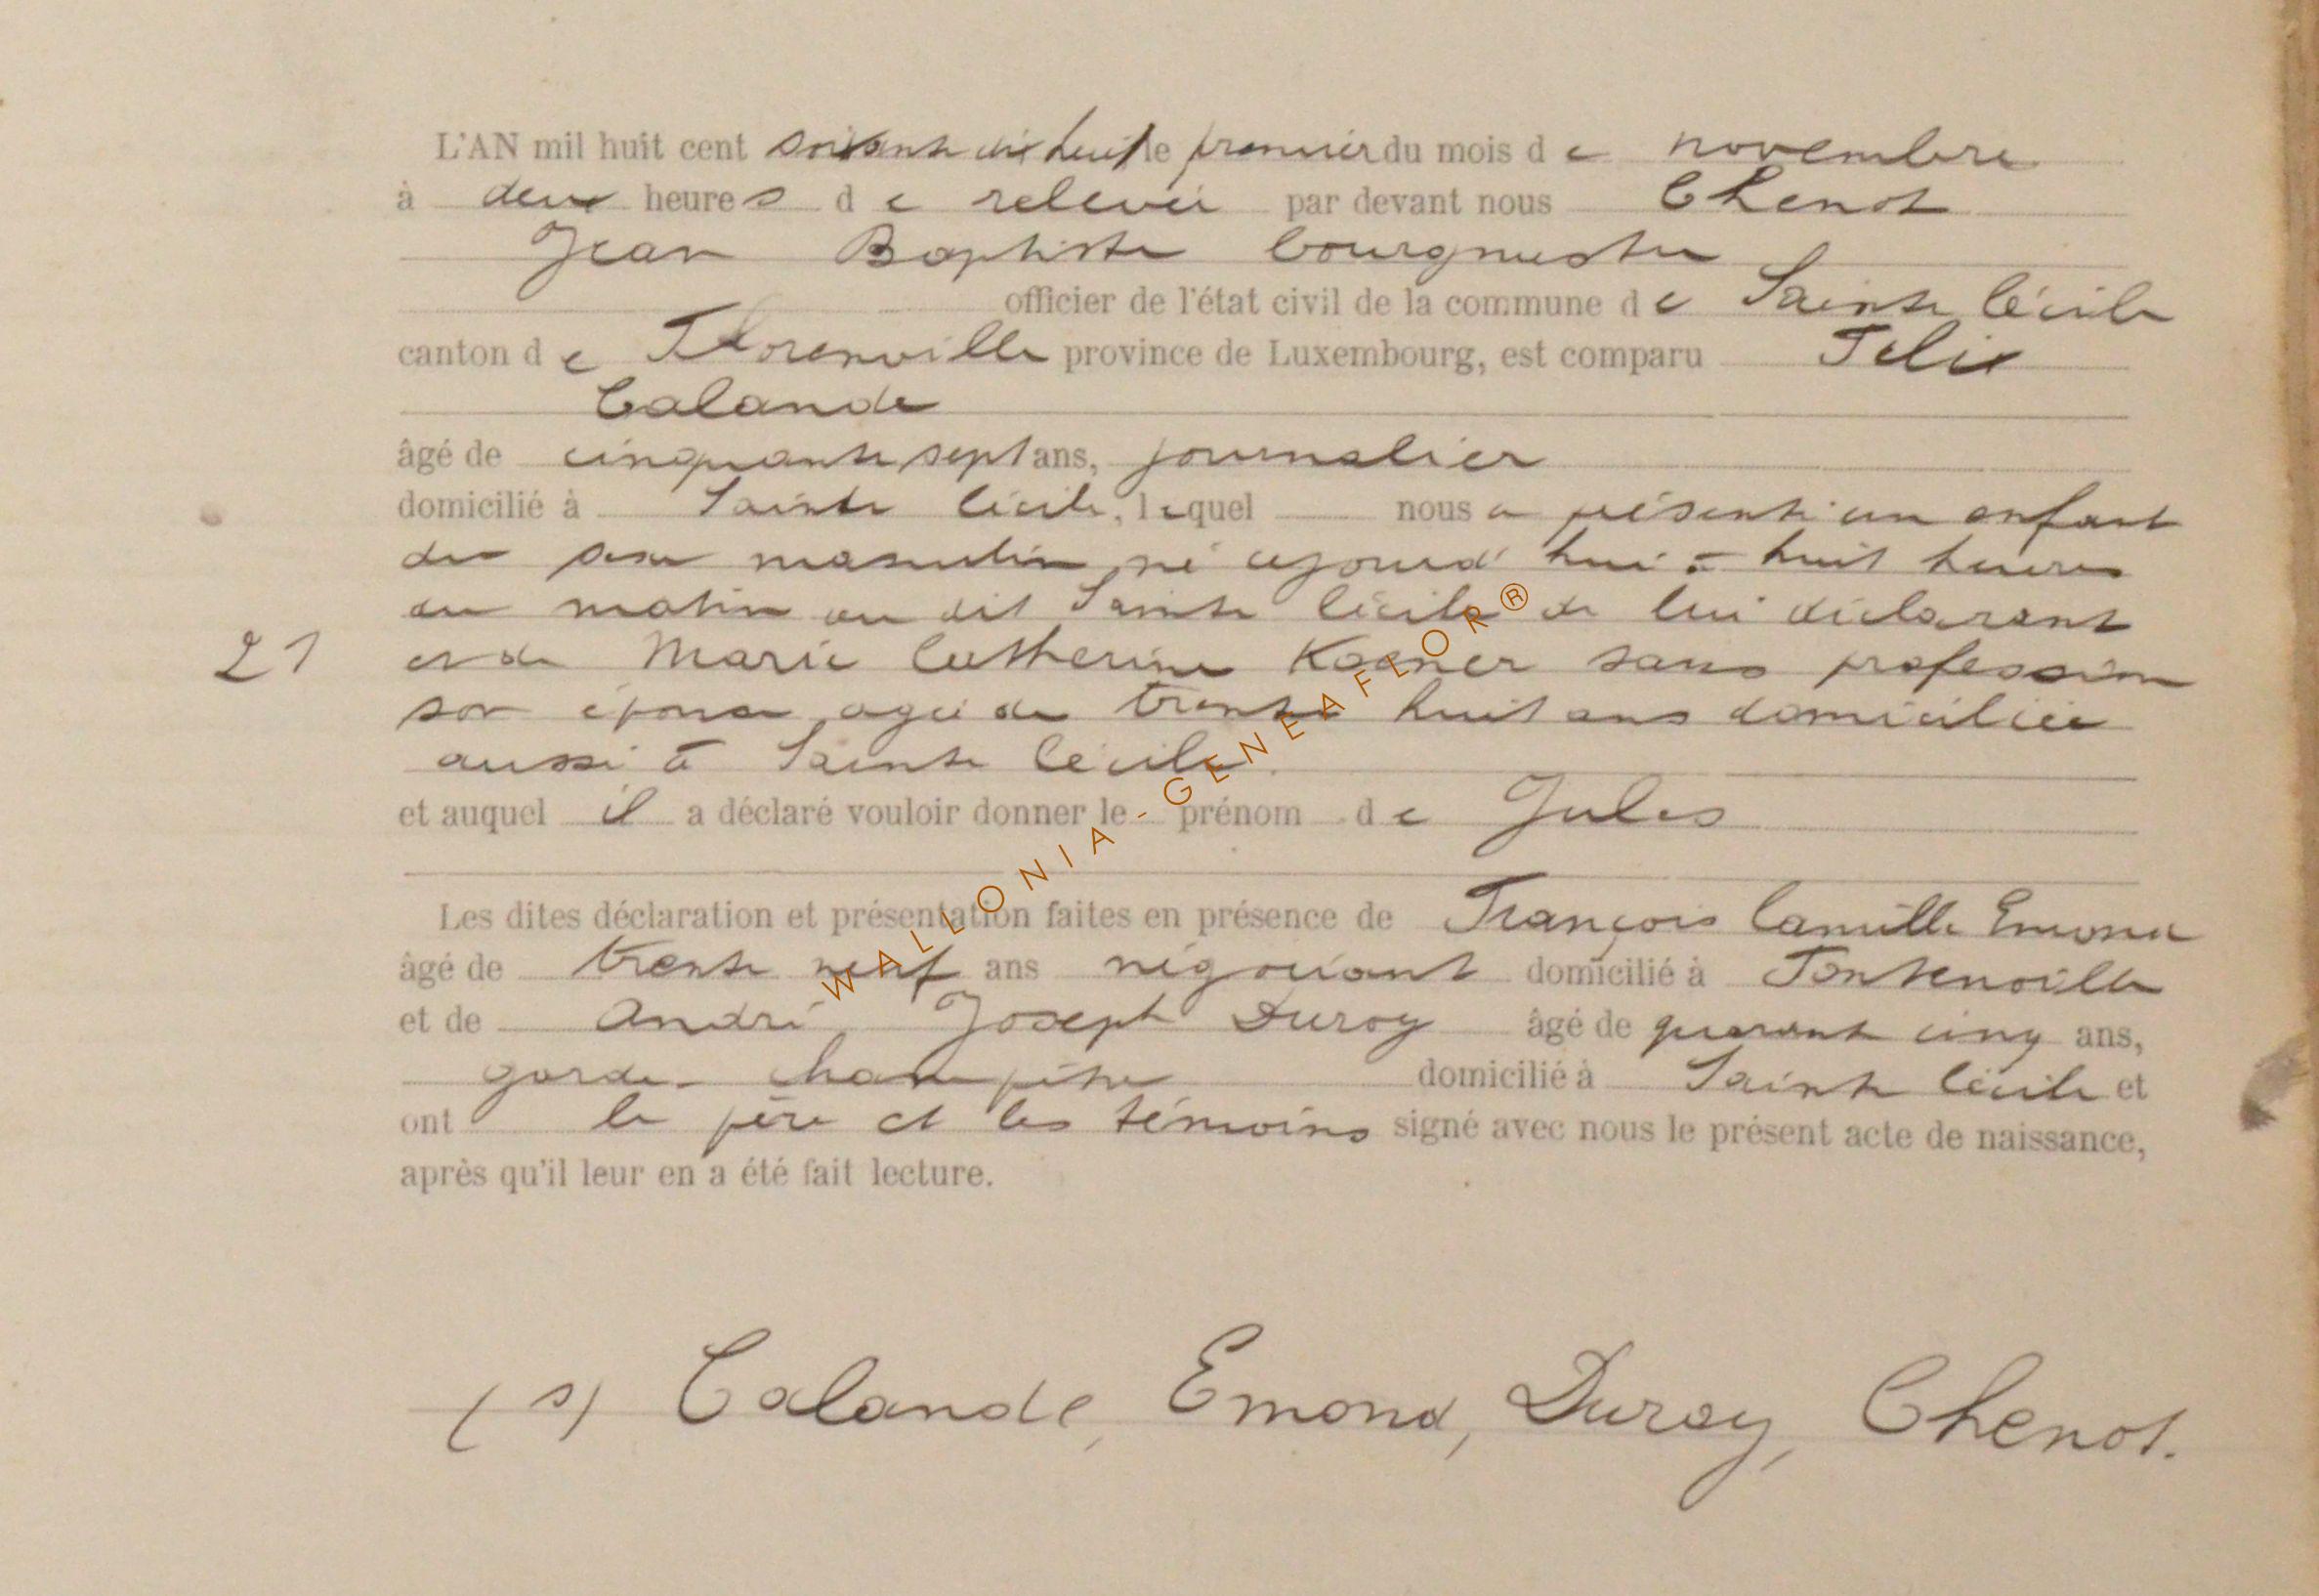 L'AN mil huit cent soixante dix huit le premier du mois de novembre
à deux heures de relevée par devant nous Chenot
Jean Baptiste bourgmestre
officier de l'état civil de la commune de Sainte Cécile
canton de Florenville province de Luxembourg, est comparu Felix
Calande
âgé de cinquante sept ans, journalier
domicilié à Sainte Cécile, lequel nous a présenté un enfant
du sexe masculin né cejourd'hui à huit heures
du matin au dit Sainte Cécile de lui déclarant
21 et de Marie Catherine Koener sans profession
son épouse agée de trente huit ans domiciliée
aussi à Sainte Cécile.
et auquel il a déclaré vouloir donner le prénom de Jules
Les dites déclaration et présentation faites en présence de François Camille Emond
âgé de trente neuf ans négociant domicilié à Fontenoille
et de André Joseph Duroy âgé de quarante cinq ans,
garde-champêtre domicilié à Sainte Cécile et
ont le père et les témoins signé avec nous le présent acte de naissance,
après qu'il leur en a été fait lecture.
(s) Calande, Emond, Duroy, Chenot.
WALLONIA-GENEAFLOR®